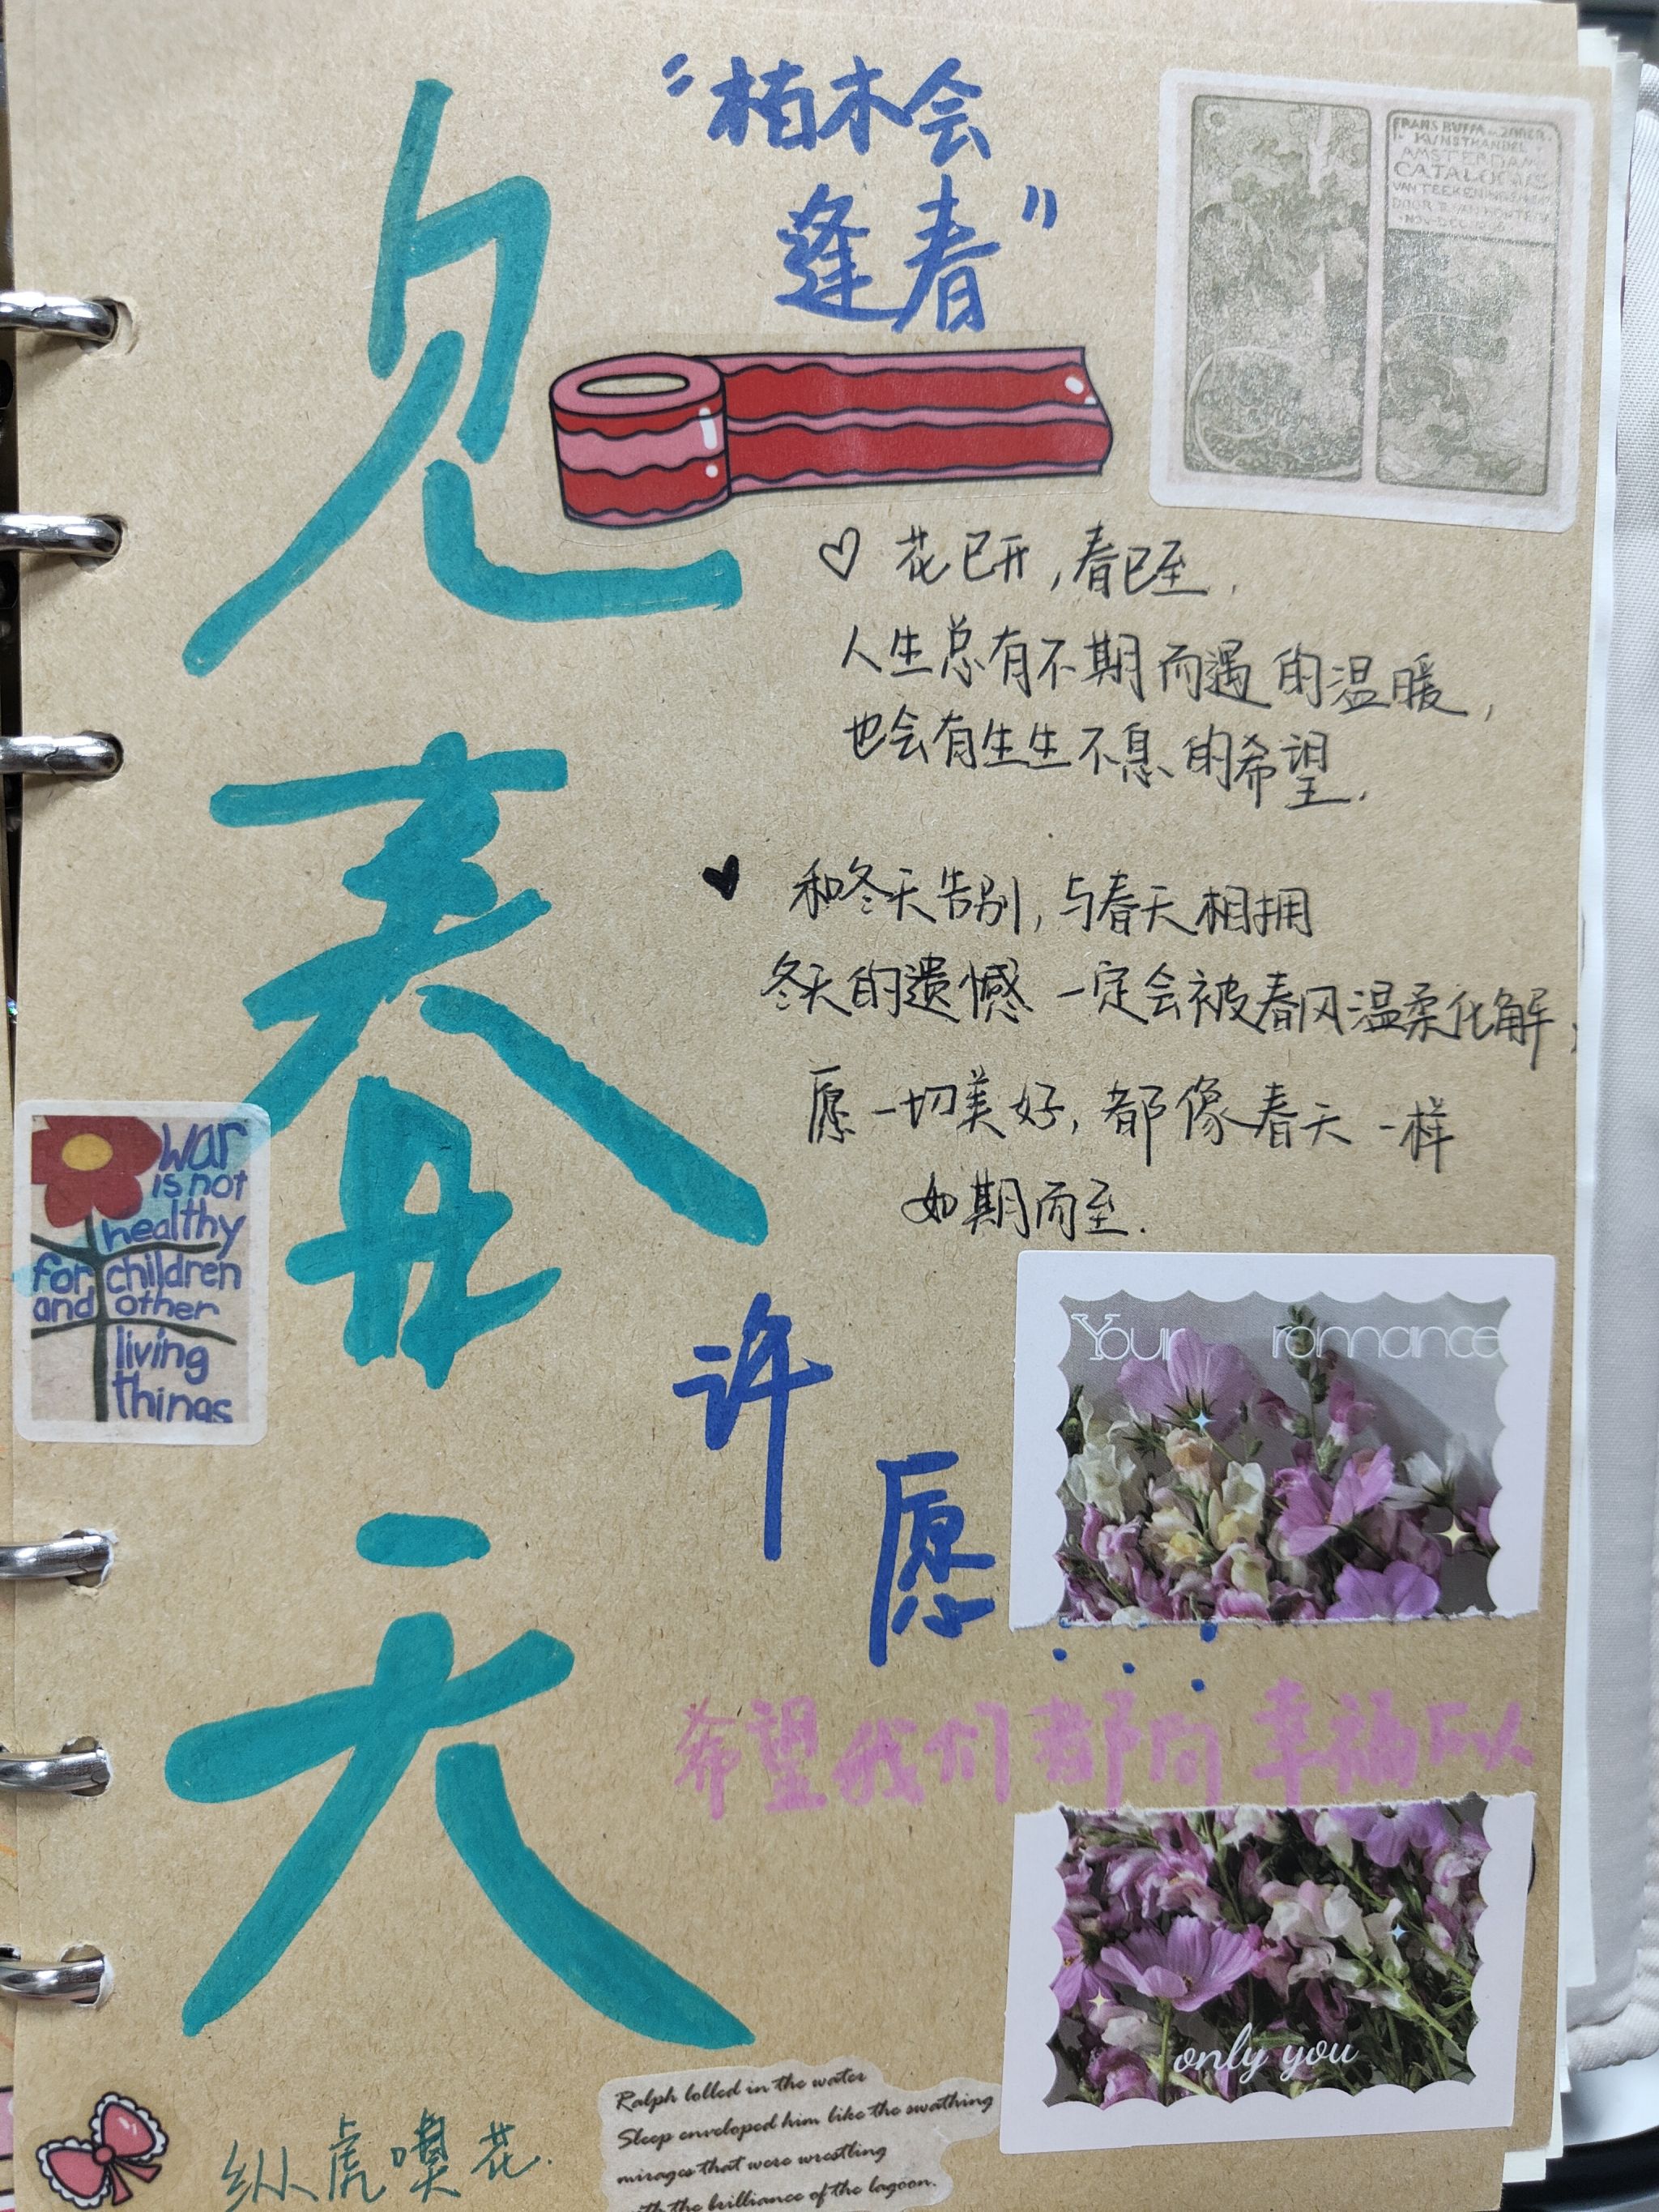 见春天
"柏木会
逢春"
FRANS BUFFA
KUNSTHANDEL
AMSTERDAM
CATALOGUS
NOV-DEC
花已开,春已至.
人生总有不期而遇的温暖,
也会有生生不息的希望.
和冬天告别,与春天相拥
冬天的遗憾 一定会被春风温柔化解,
愿一切美好,都像春天一样
如期而至.
war
is not
healthy
for children
and other
living
things
许
愿...
Your romance
希望我们都向幸福
only you
纵虎嗅花.
Ralph lolled in the water
Sleep enveloped him like the swathing
mirages that were wrestling
with the brilliance of the lagoon.